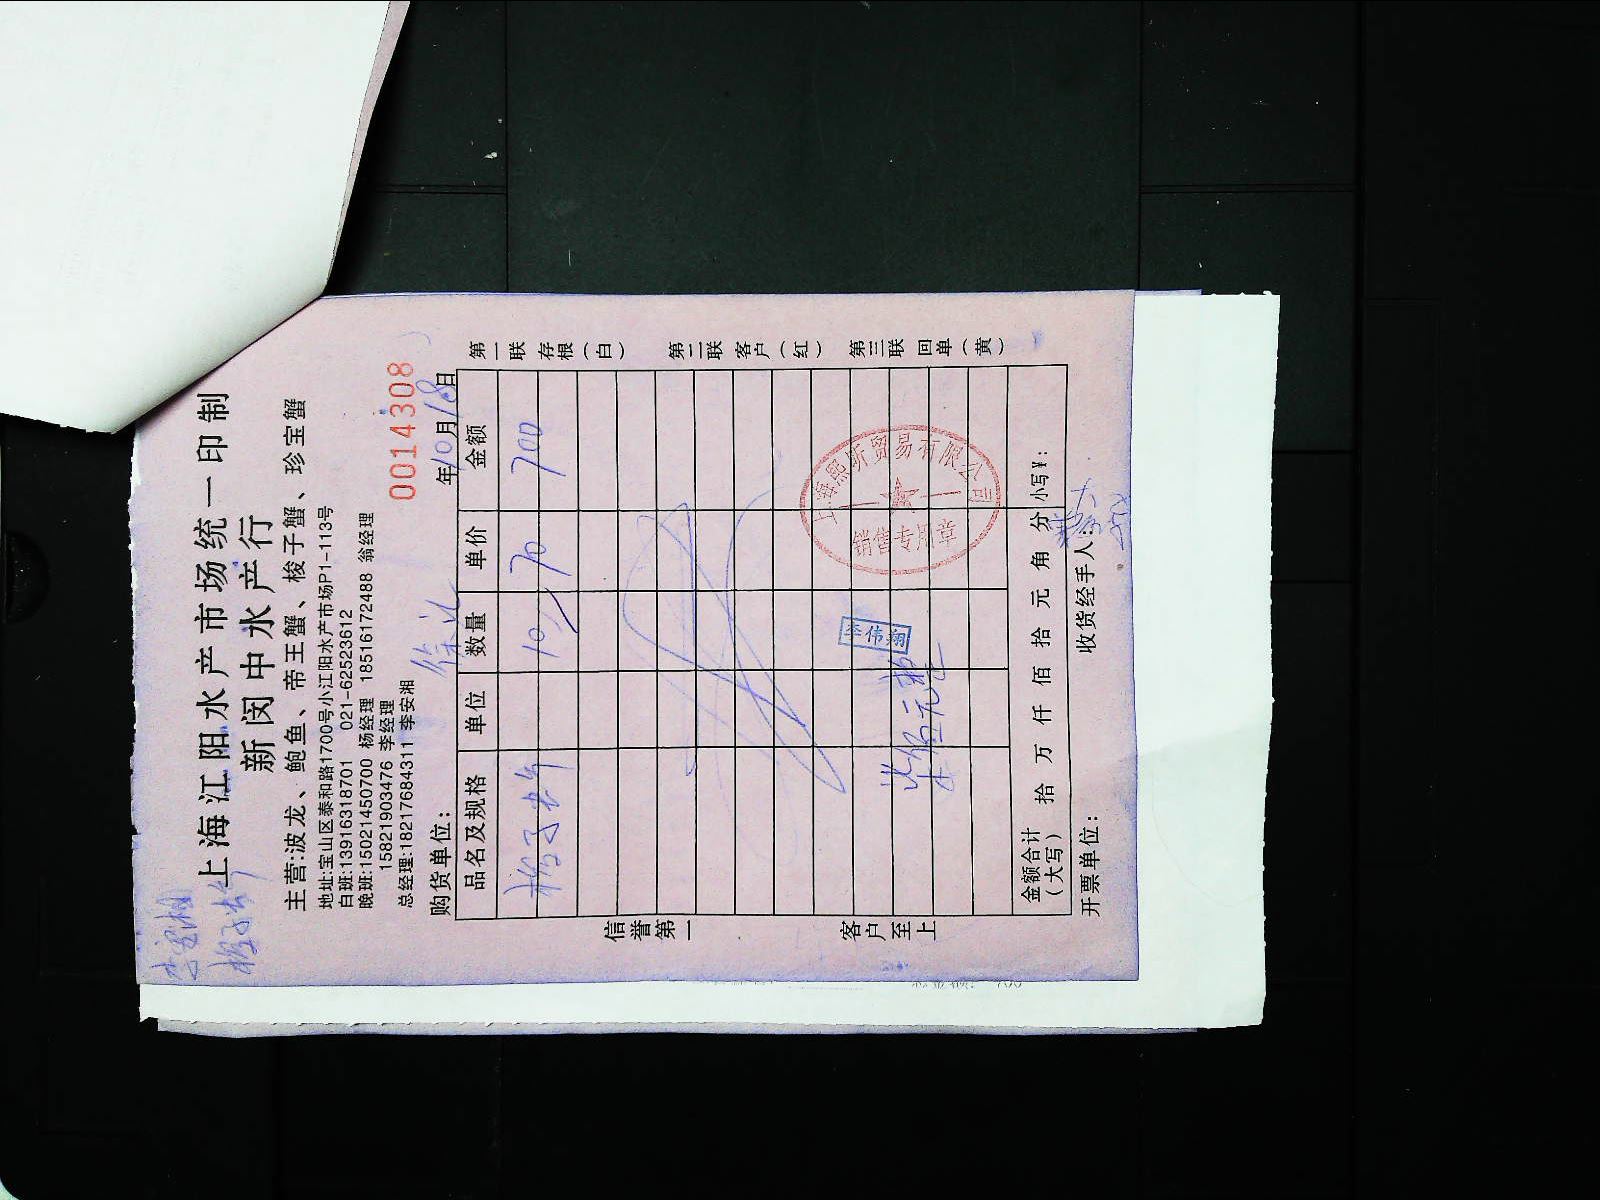 李安湘
上海江阳水产市场统一印制
新闵中水产行
主营:波龙、鲍鱼、帝王蟹、梭子蟹、珍宝蟹
地址:宝山区泰和路1700号小江阳水产市场P1-113号
白班:13916318701 021-62523612
晚班:15021450700 杨经理 18516172488 翁经理
15821903476 李经理
总经理:18217684311 李安湘
0014308
购货单位: 年10月18日
品名及规格 单位 数量 单价 金额
10 70 700
信誉第一
客户至上
第一联 存根(白)
第二联 客户(红)
第三联 回单(黄)
上海熙昕贸易有限公司
销售专用章
李伟翔
柒佰元整
金额合计(大写) 拾 万 仟 佰 拾 元 角 分 小写¥:
开票单位: 收货经手人: